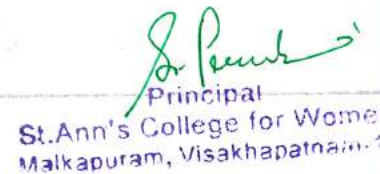 Principal
St.Ann's College for Wome
Malkapuram, Visakhapatnam.